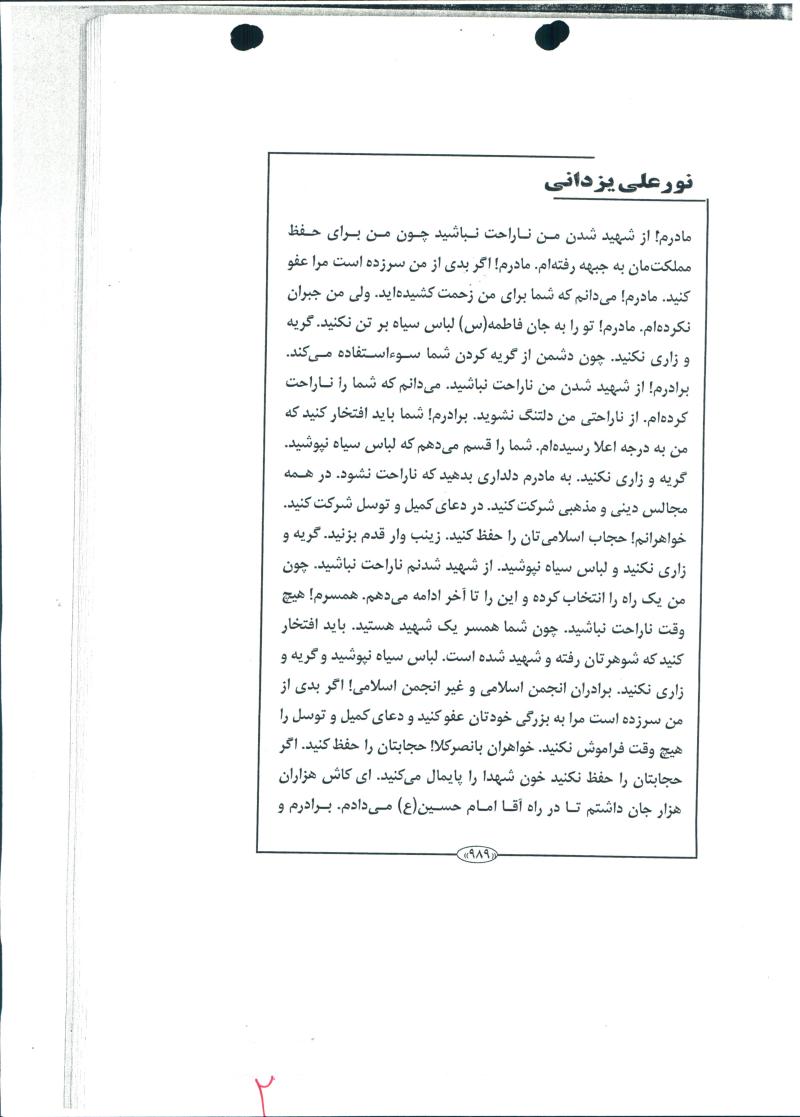 نورعلی یزدانی
مادرم! از شهید شدن من ناراحت نباشید چون من برای حفظ
مملکت‌مان به جبهه رفته‌ام. مادرم! اگر بدی از من سرزده است مرا عفو
کنید. مادرم! می‌دانم که شما برای من زحمت کشیده‌اید. ولی من جبران
نکرده‌ام. مادرم! تو را به جان فاطمه(س) لباس سیاه بر تن نکنید. گریه
و زاری نکنید. چون دشمن از گریه کردن شما سوءاستفاده می‌کند.
برادرم! از شهید شدن من ناراحت نباشید. می‌دانم که شما را ناراحت
کرده‌ام. از ناراحتی من دلتنگ نشوید. برادرم! شما باید افتخار کنید که
من به درجه اعلا رسیده‌ام. شما را قسم می‌دهم که لباس سیاه نپوشید.
گریه و زاری نکنید. به مادرم دلداری بدهید که ناراحت نشود. در همه
مجالس دینی و مذهبی شرکت کنید. در دعای کمیل و توسل شرکت کنید.
خواهرانم! حجاب اسلامی‌تان را حفظ کنید. زینب وار قدم بزنید. گریه و
زاری نکنید و لباس سیاه نپوشید. از شهید شدنم ناراحت نباشید. چون
من یک راه را انتخاب کرده و این را تا آخر ادامه می‌دهم. همسرم! هیچ
وقت ناراحت نباشید. چون شما همسر یک شهید هستید. باید افتخار
کنید که شوهرتان رفته و شهید شده است. لباس سیاه نپوشید و گریه و
زاری نکنید. برادران انجمن اسلامی و غیر انجمن اسلامی! اگر بدی از
من سرزده است مرا به بزرگی خودتان عفو کنید و دعای کمیل و توسل را
هیچ وقت فراموش نکنید. خواهران بانصرکلا! حجابتان را حفظ کنید. اگر
حجابتان را حفظ نکنید خون شهدا را پایمال می‌کنید. ای کاش هزاران
هزار جان داشتم تا در راه آقا امام حسین(ع) می‌دادم. برادرم و
«۹۸۹»
۲